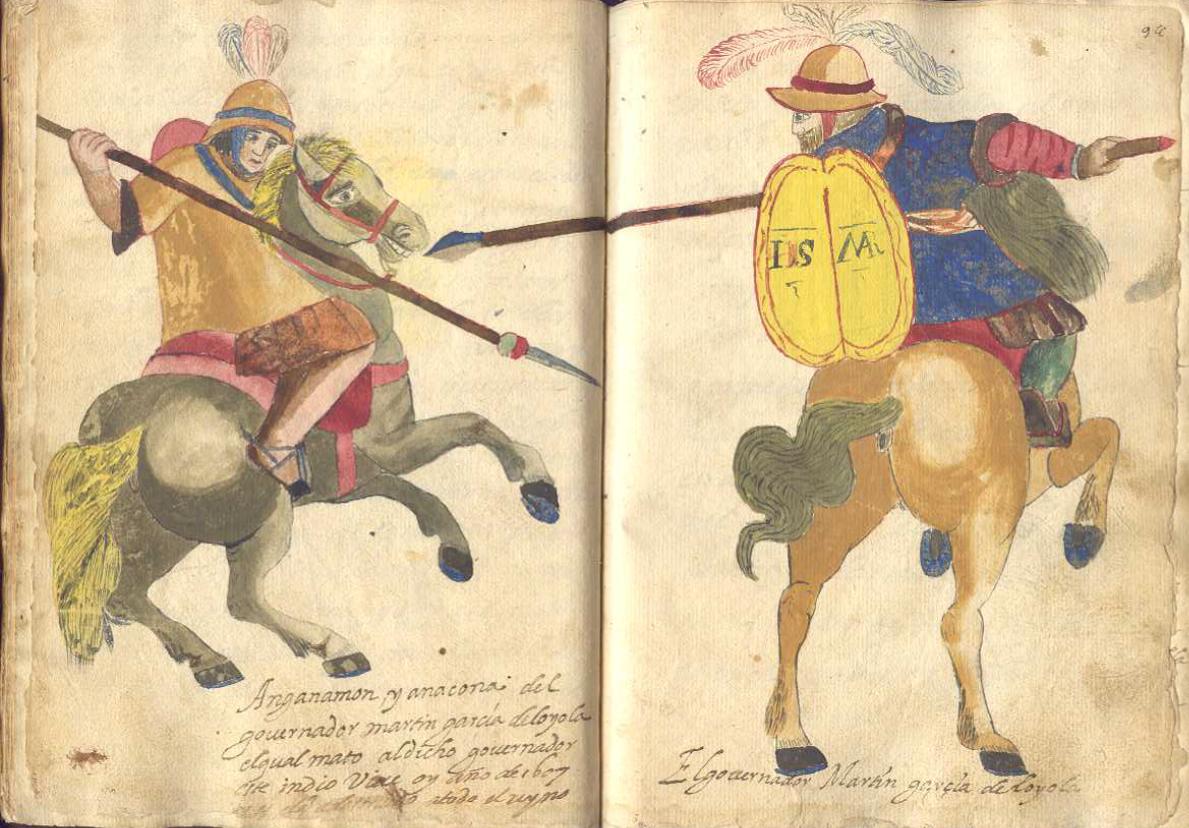 Anganamon yanacona del
governador martin garcia de loyola
el qual mato al dicho governador
este indio Vive oy año de 1607
todo el reyno
94
IHS MA
El governador Martin garcia de loyola